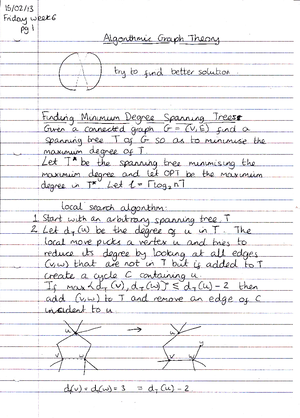 15/02/13
Friday week 6
pg 1
Algorithmic Graph Theory
try to find better solution
Finding Minimum Degree Spanning Trees
Given a connected graph G = (V, E) find a
spanning tree T of G so as to minimise the
maximum degree of T.
Let T* be the spanning tree minimising the
maximum degree and let OPT be the maximum
degree in T*. Let ℓ = ⌈log₂ n⌉
Local search algorithm:
1. Start with an arbitrary spanning tree, T
2. Let d_T(u) be the degree of u in T. The
local move picks a vertex u and tries to
reduce its degree by looking at all edges
(v,w) that are not in T but is added to T
create a cycle C containing u.
If max{d_T(v), d_T(w)} ≤ d_T(u) - 2 then
add (v,w) to T and remove an edge of C
incident to u.
u → u
v w v w
d(v) = d(w) = 3 = d_T(u) - 2